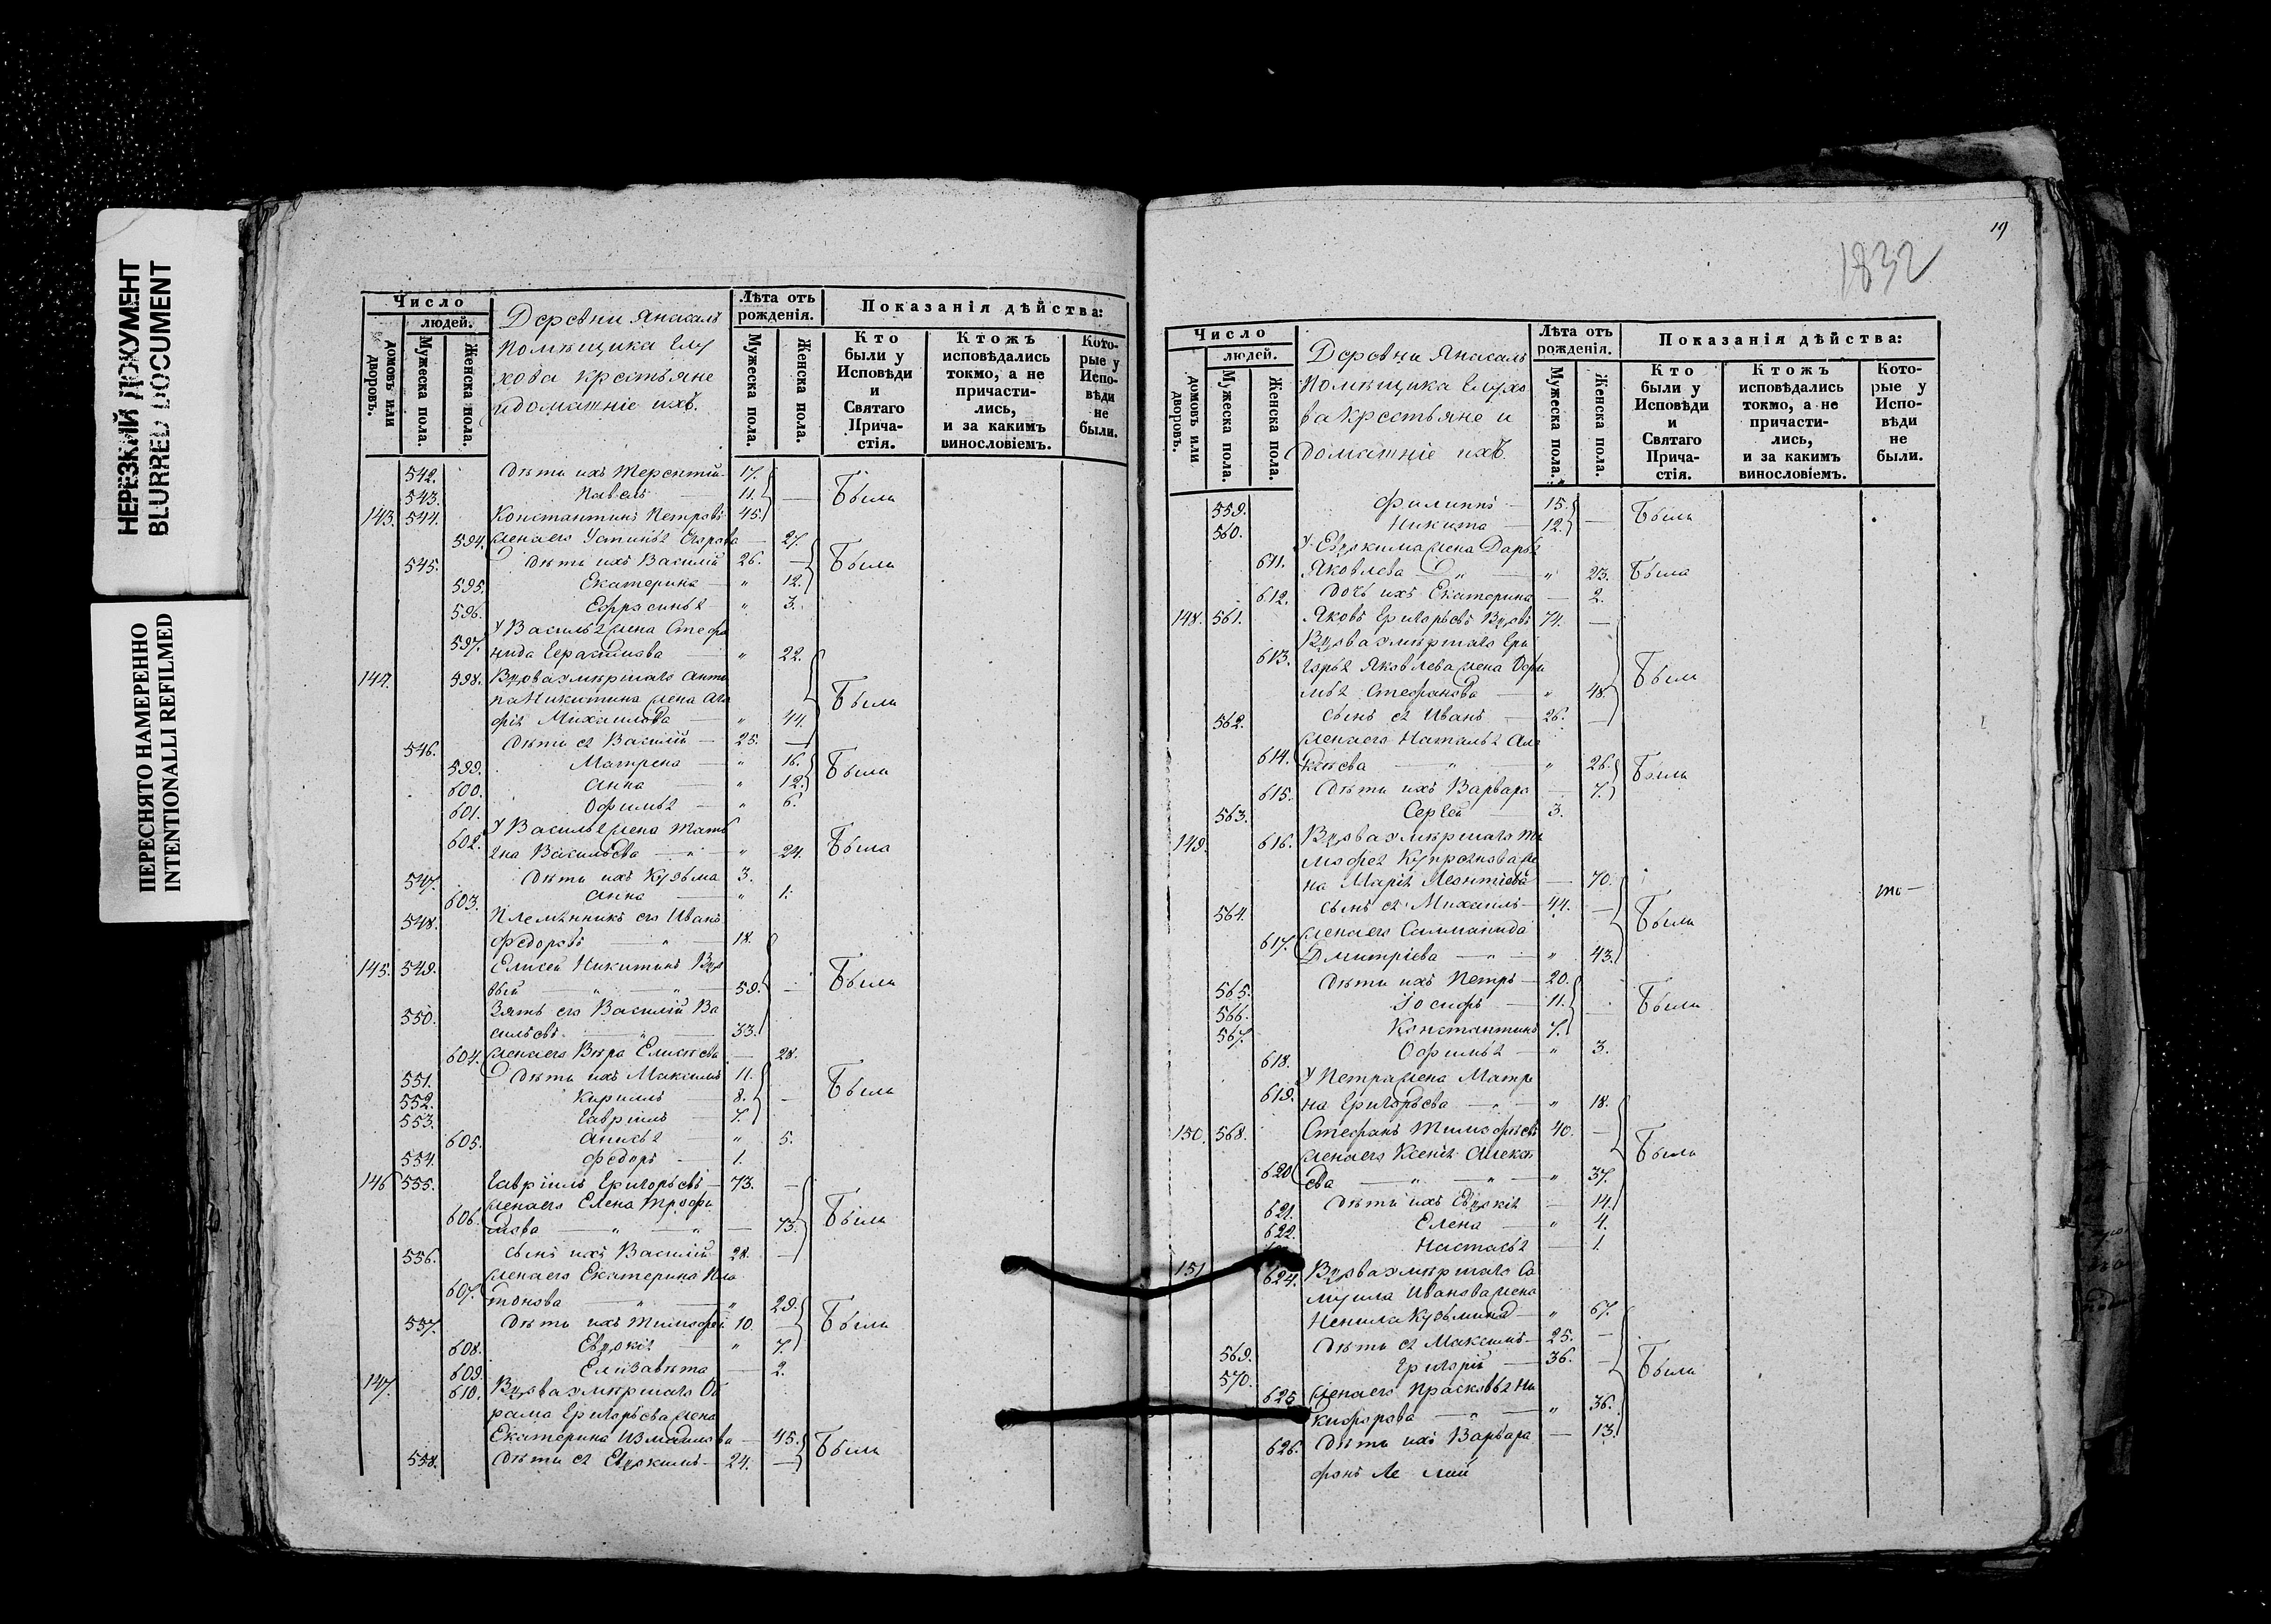 НЕРЕЗКИЙ ДОКУМЕНТ
BLURRED DOCUMENT
ПЕРЕСНЯТО НАМЕРЕННО
INTENTIONALLI REFILMED
Число
людей.
домовъ или дворовъ.
Мужеска пола.
Женска пола.
Деревни
помѣщика Глу
хова крестьяне
и домашніе ихъ.
Лѣта отъ рожденія.
Мужеска пола.
Женска пола.
Показанія дѣйства:
Кто были у Исповѣди и Святаго Причастія.
Ктожъ исповѣдались токмо, а не причастились, и за какимъ винословіемъ.
Которые у Исповѣди не были.
542. Дѣти ихъ Терентій 17.
543. Павелъ — 11. — Были
143. 544. Константинъ Петровъ 45.
594. жена его Устинья Егорова — 27.
545. Дѣти ихъ Василій 26. — Были
595. Екатерина — " 12.
596. Ефросинья — " 3.
У Василья жена Степа
597. нида Герасимова — " 22.
144. 598. Вдова умершаго Анти
па Никитина жена Ага
фія Михаилова — " 44. Были
546. Дѣти ея Василій — 25. —
599. Матрена — " 16. Были
600. Анна — " 12.
601. Офимья — " 6.
У Василья жена Тать
602. яна Васильева — " — " 24. Была
547. Дѣти ихъ Кузьма 3.
603. Анна — " 1.
548. Племянникъ его Иванъ
Федоровъ — " — 18.
145. 549. Елисей Никитинъ Вдо
вый — " — " — 59. — Были
550. Зять его Василій Ва
сильевъ — " — 33.
604. жена его Вѣра Елисѣева — 28.
551. Дѣти ихъ Максимъ 11.
552. Кирилъ — 8. — Были
553. Гаврiилъ 7.
605. Анисья — " 5.
554. Федоръ — 1.
146 555. Гавріилъ Григорьевъ — 73. —
жена его Елена Трофи
606. мова — " — " — 73. Были
556. сынъ ихъ Василій 28. —
жена его Екатерина Пла
607. тонова — " — " 29.
557. Дѣти ихъ Тимофей 10. — Были
608. Евдокія — " 7.
609. Елизавѣта — 2.
147. 610. Вдова умершаго Об
рама Григорьева жена
Екатерина Измаилова — 45. Были
558. Дѣти ея Евдокимъ — 24. —
19
1832
Число
людей.
домовъ или дворовъ.
Мужеска пола.
Женска пола.
Деревни
помѣщика Глухо
ва крестьяне и
домашніе ихъ.
Лѣта отъ рожденія.
Мужеска пола.
Женска пола.
Показанія дѣйства:
Кто были у Исповѣди и Святаго Причастія.
Ктожъ исповѣдались токмо, а не причастились, и за какимъ винословіемъ.
Которые у Исповѣди не были.
559. Филиппъ — 15. Были
560. Никита — 12. —
У Евдокима жена Дарья
611. Яковлева — " — " 23. Была
612. Дочь ихъ Екатерина — 2.
148. 561. Яковъ Григорьевъ Вдовъ 74. —
Вдова умершаго Гри
613. горья Яковлева жена Офи
мья Стефанова — " 48. Были
562. сынъ ея Иванъ — 26. —
жена его Наталья Але
614. ксѣева — " — " 26. Были
615. Дѣти ихъ Варвара — 7.
563. Сергей — 3.
149. 616. Вдова умершаго Ти
мофея Купреянова же
на Марія Леонтіева — 70.
564. сынъ ея Михаилъ — 44. — Были
жена его Саломанида
617. Дмитріева — " — " 43.
565. Дѣти ихъ Петръ — 20.
566. Іосифъ — 11. — Были
567. Константинъ 7.
618. Офимья — " 3.
У Петра жена Матре
619. на Григорьева — " — " 18.
150. 568. Стефанъ Тимофѣевъ 40. —
жена его Ксенія Алексѣ Были
620 ева — " — " — " 37.
621. Дѣти ихъ Евдокія — 14.
622. Елена — " 4.
Настасья — 1.
151 624. Вдова умершаго Са
муила Иванова жена
Ненила Кузьмина — " 67.
569. Дѣти ея Максимъ — 25. —
570. Григорій — 36. — Были
625 жена его Прасковья Ни
кифорова — " — " 36.
626. Дѣти ихъ Варвара — 13.